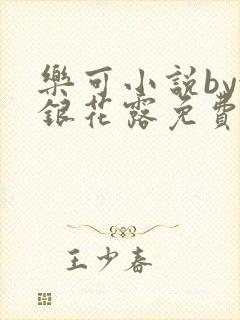 樂可小說by
銀花露免費
王少春